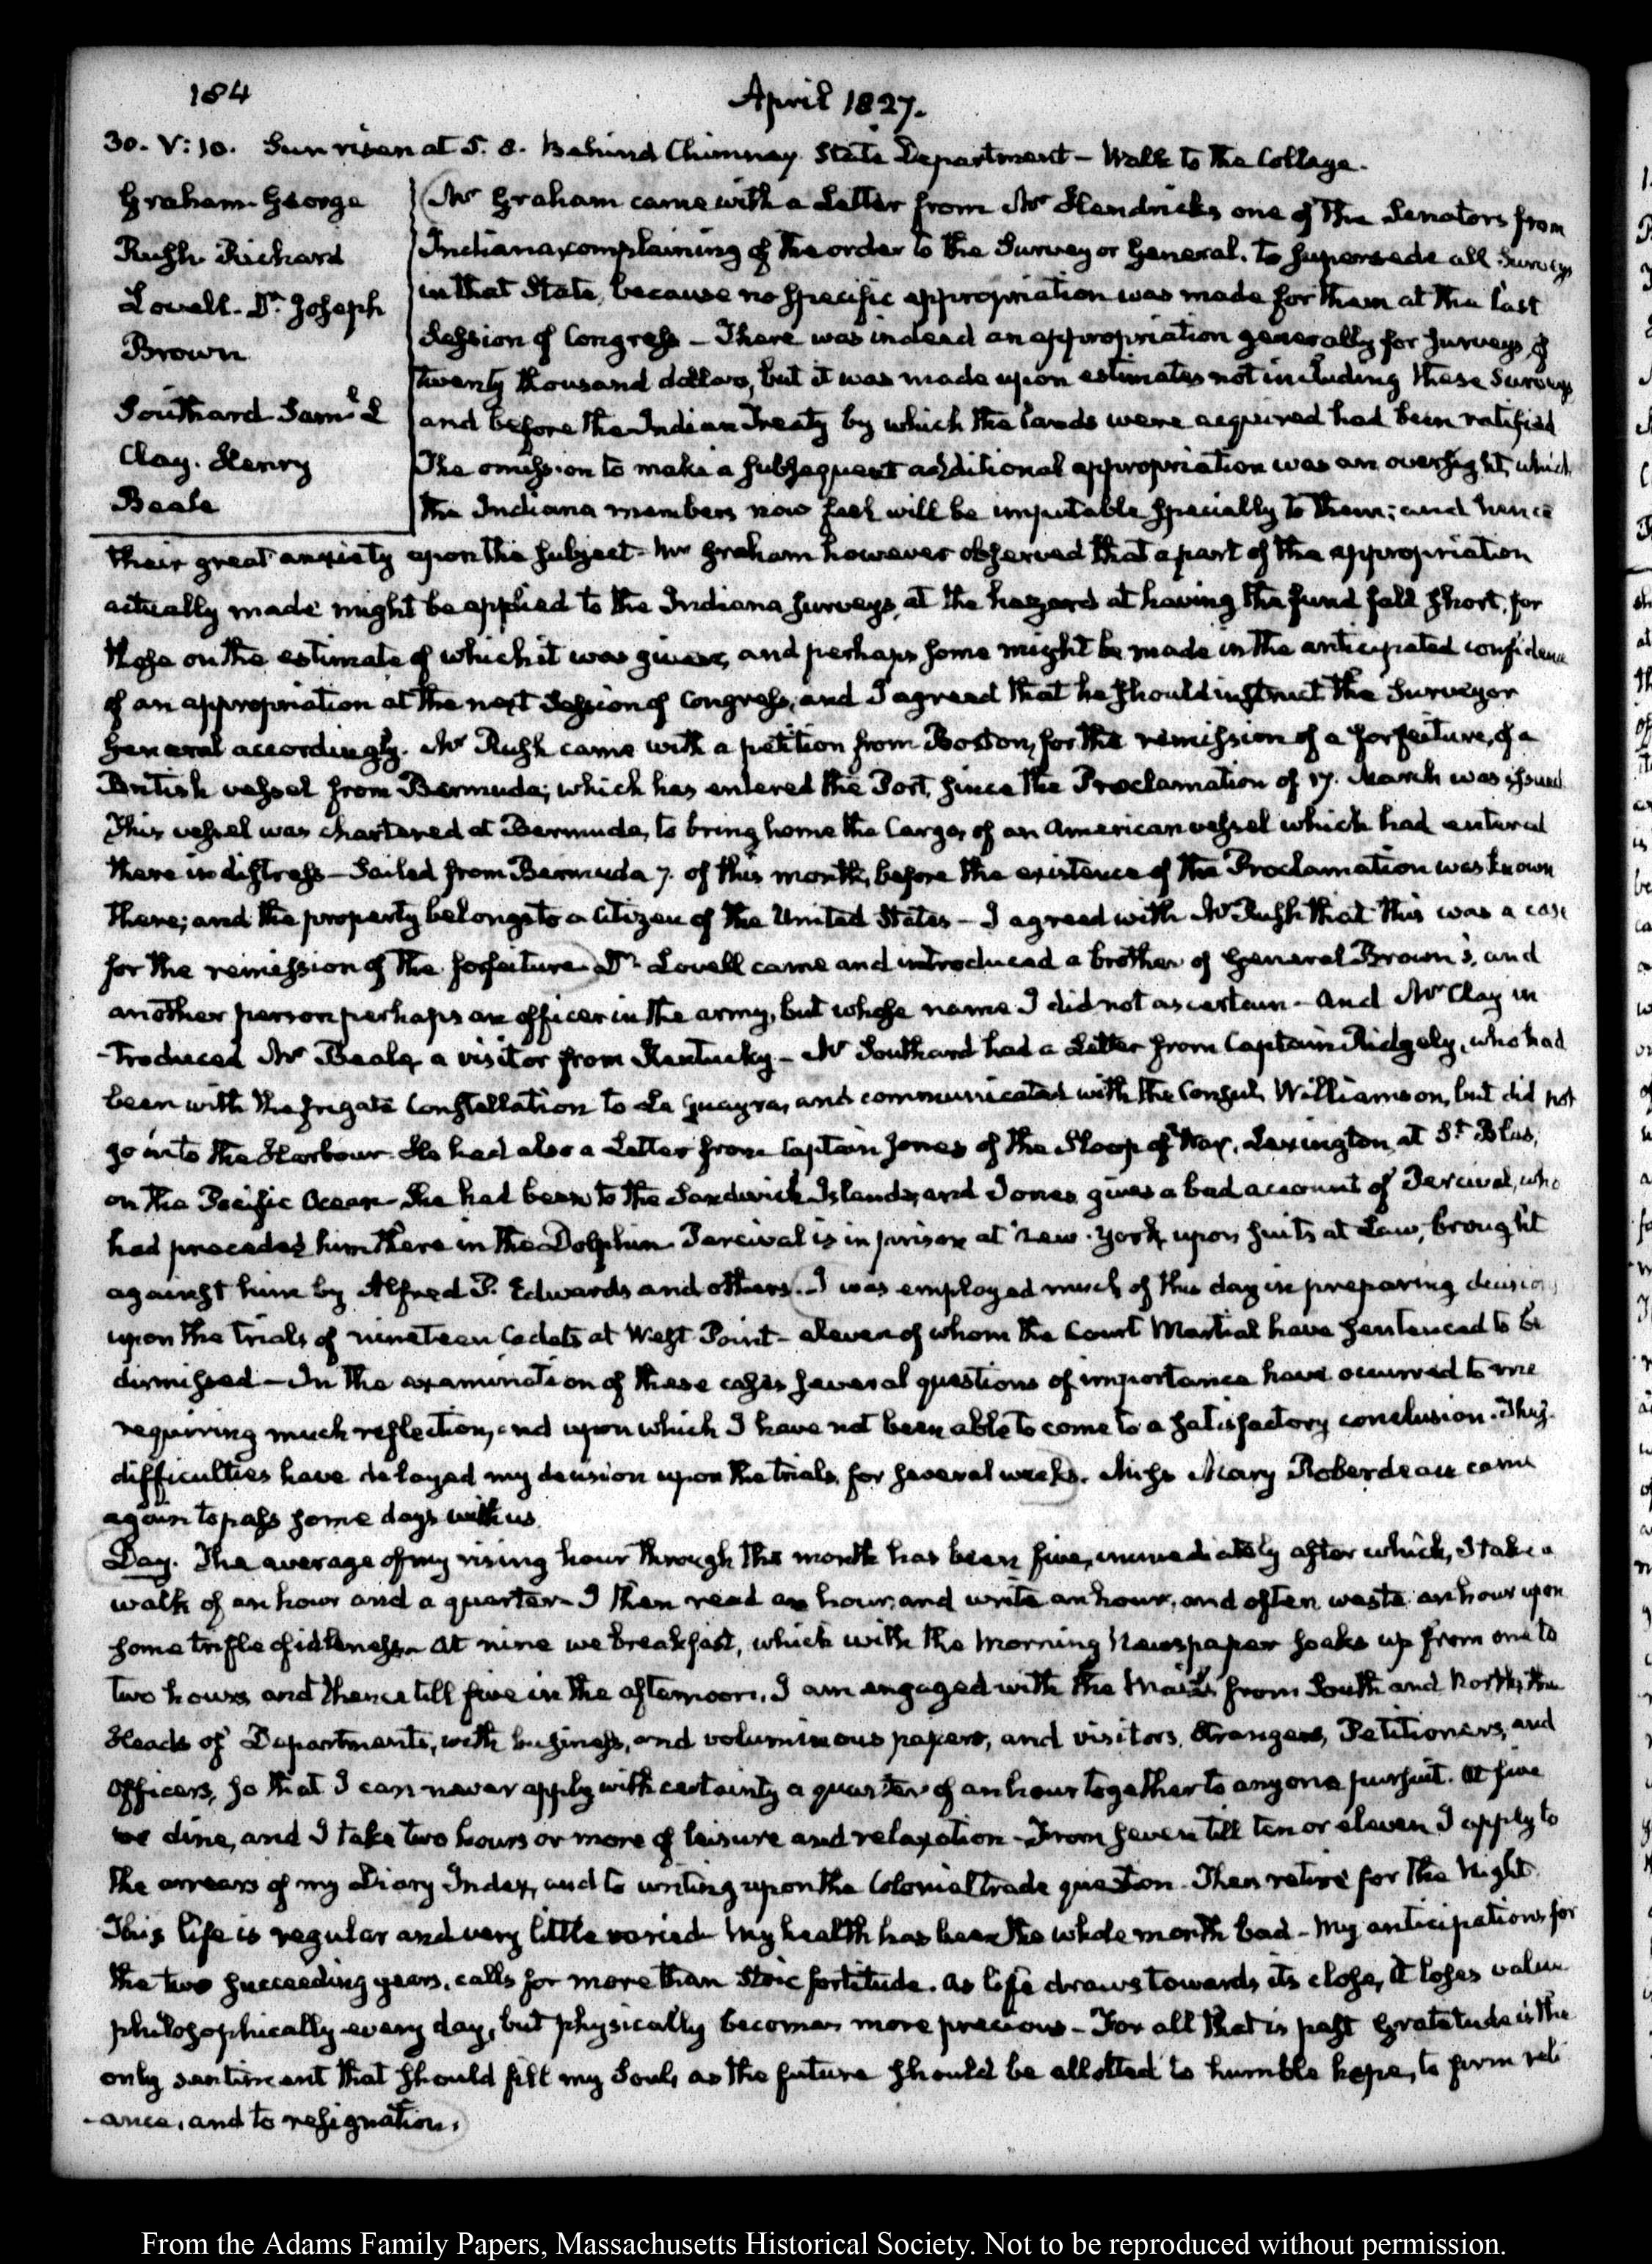 184
April 1827.
30. V:10. Sun risen at 5. 8. Behind Chimney State Department — Walk to the College.
Graham George
Rush Richard
Lovell. Dr. Joseph
Brown
Southard Saml. L
Clay. Henry
Beale
Mr Graham came with a Letter from Mr Hendricks one of the Senators from
Indiana, complaining of the order to the Surveyor General, to supersede all Surveys
in that State, because no specific appropriation was made for them at the last
Session of Congress — There was indeed an appropriation generally for Surveys, of
twenty thousand dollars, but it was made upon estimates not including these Surveys
and before the Indian Treaty by which the lands were acquired had been ratified
The omission to make a subsequent additional appropriation was an oversight, which
the Indiana members now feel will be imputable specially to them; and hence
their great anxiety upon the subject. Mr Graham however observed that a part of the appropriation
actually made might be applied to the Indiana surveys, at the hazard at having the fund fall short, for
those on the estimate of which it was given, and perhaps some might be made in the anticipated confidence
of an appropriation at the next Session of Congress, and I agreed that he should instruct the Surveyor
General accordingly. Mr Rush came with a petition from Boston, for the remission of a forfeiture, of a
British vessel from Bermuda; which has entered the Port, since the Proclamation of 17. March was issued.
This vessel was chartered at Bermuda, to bring home the Cargo, of an American vessel which had entered
there in distress — Sailed from Bermuda 7. of this month, before the existence of the Proclamation was known
there; and the property belongs to a Citizen of the United States — I agreed with Mr Rush that this was a case
for the remission of the forfeiture. Dr. Lovell came and introduced a brother of General Brown's, and
another person perhaps an officer in the army, but whose name I did not ascertain — And Mr Clay in
-troduced Mr Beale, a visitor from Kentucky — Mr Southard had a Letter from Captain Ridgely, who had
been with the frigate Constellation to La Guayra, and communicated with the Consul, Williamson, but did not
go into the Harbour. He had also a Letter from Captain Jones of the Sloop of War, Lexington, at St. Blas,
on the Pacific Ocean. She had been to the Sandwich Islands, and Jones gives a bad account of Percival, who
had preceded him there in the Dolphin. Percival is in prison at New-York, upon suits at Law, brought
against him by Alfred P. Edwards and others. I was employed much of this day in preparing decisions
upon the trials of nineteen Cadets at West Point — eleven of whom the Court Martial have sentenced to be
dismissed — In the examination of these cases several questions of importance have occurred to me
requiring much reflection, and upon which I have not been able to come to a satisfactory conclusion. These
difficulties have delayed my decision upon the trials, for several weeks. Miss Mary Roberdeau came
again to pass some days with us.
Day. The average of my rising hour through the month has been five, immediately after which, I take a
walk of an hour and a quarter. I then read an hour, and write an hour, and often waste an hour upon
some trifle of idleness. At nine we breakfast, which with the Morning Newspaper soaks up from one to
two hours and thence till five in the afternoon, I am engaged with the Mails from South and North, the
Heads of Departments, with business, and voluminous papers, and visitors, Strangers, Petitioners, and
Officers, so that I can never apply with certainty a quarter of an hour together to any one pursuit. At five
we dine, and I take two hours or more of leisure and relaxation — From seven till ten or eleven I apply to
the arrears of my Diary Index, and to writing upon the Colonial trade question. Then retire for the Night.
This life is regular and very little varied. My health has been the whole month bad — My anticipations for
the two succeeding years, calls for more than Stoic fortitude. As life draws towards its close, it loses value
philosophically every day, but physically becomes more precious — For all that is past Gratitude is the
only sentiment that should fill my Soul, as the future should be allotted to humble hope, to firm reli
-ance, and to resignation.
From the Adams Family Papers, Massachusetts Historical Society. Not to be reproduced without permission.